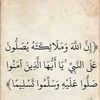 ﴿إِنَّ اللَّهَ وَمَلَائِكَتَهُ يُصَلُّونَ
عَلَى النَّبِيِّ ۚ يَا أَيُّهَا الَّذِينَ آمَنُوا
صَلُّوا عَلَيْهِ وَسَلِّمُوا تَسْلِيمًا﴾